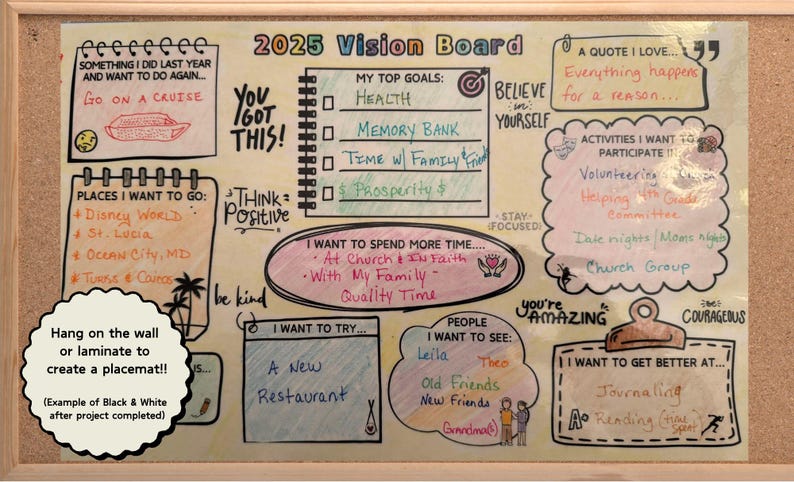 2025 Vision Board
SOMETHING I DID LAST YEAR
AND WANT TO DO AGAIN...
GO ON A CRUISE
YOU
GOT
THIS!
MY TOP GOALS:
HEALTH
MEMORY BANK
TIME W/ FAMILY & Friends
$ Prosperity $
BELIEVE
in
YOURSELF
A QUOTE I LOVE...
Everything happens
for a reason...
PLACES I WANT TO GO:
* DISNEY WORLD
* ST. LUCIA
* OCEAN CITY, MD
* TURKS & CAICOS
THINK
Positive
STAY
FOCUSED
ACTIVITIES I WANT TO
PARTICIPATE IN
Volunteering
Helping 4th Grade
Committee
Date nights / Moms nights
Church Group
I WANT TO SPEND MORE TIME....
• At Church & IN FAITH
• With My Family -
Quality Time
be kind
you're
AMAZING
be
COURAGEOUS
Hang on the wall
or laminate to
create a placemat!!
(Example of Black & White
after project completed)
IS...
I WANT TO TRY...
A New
Restaurant
PEOPLE
I WANT TO SEE:
Leila
Theo
Old Friends
New Friends
Grandma(s)
I WANT TO GET BETTER AT...
Journaling
A+ Reading (time
spent)